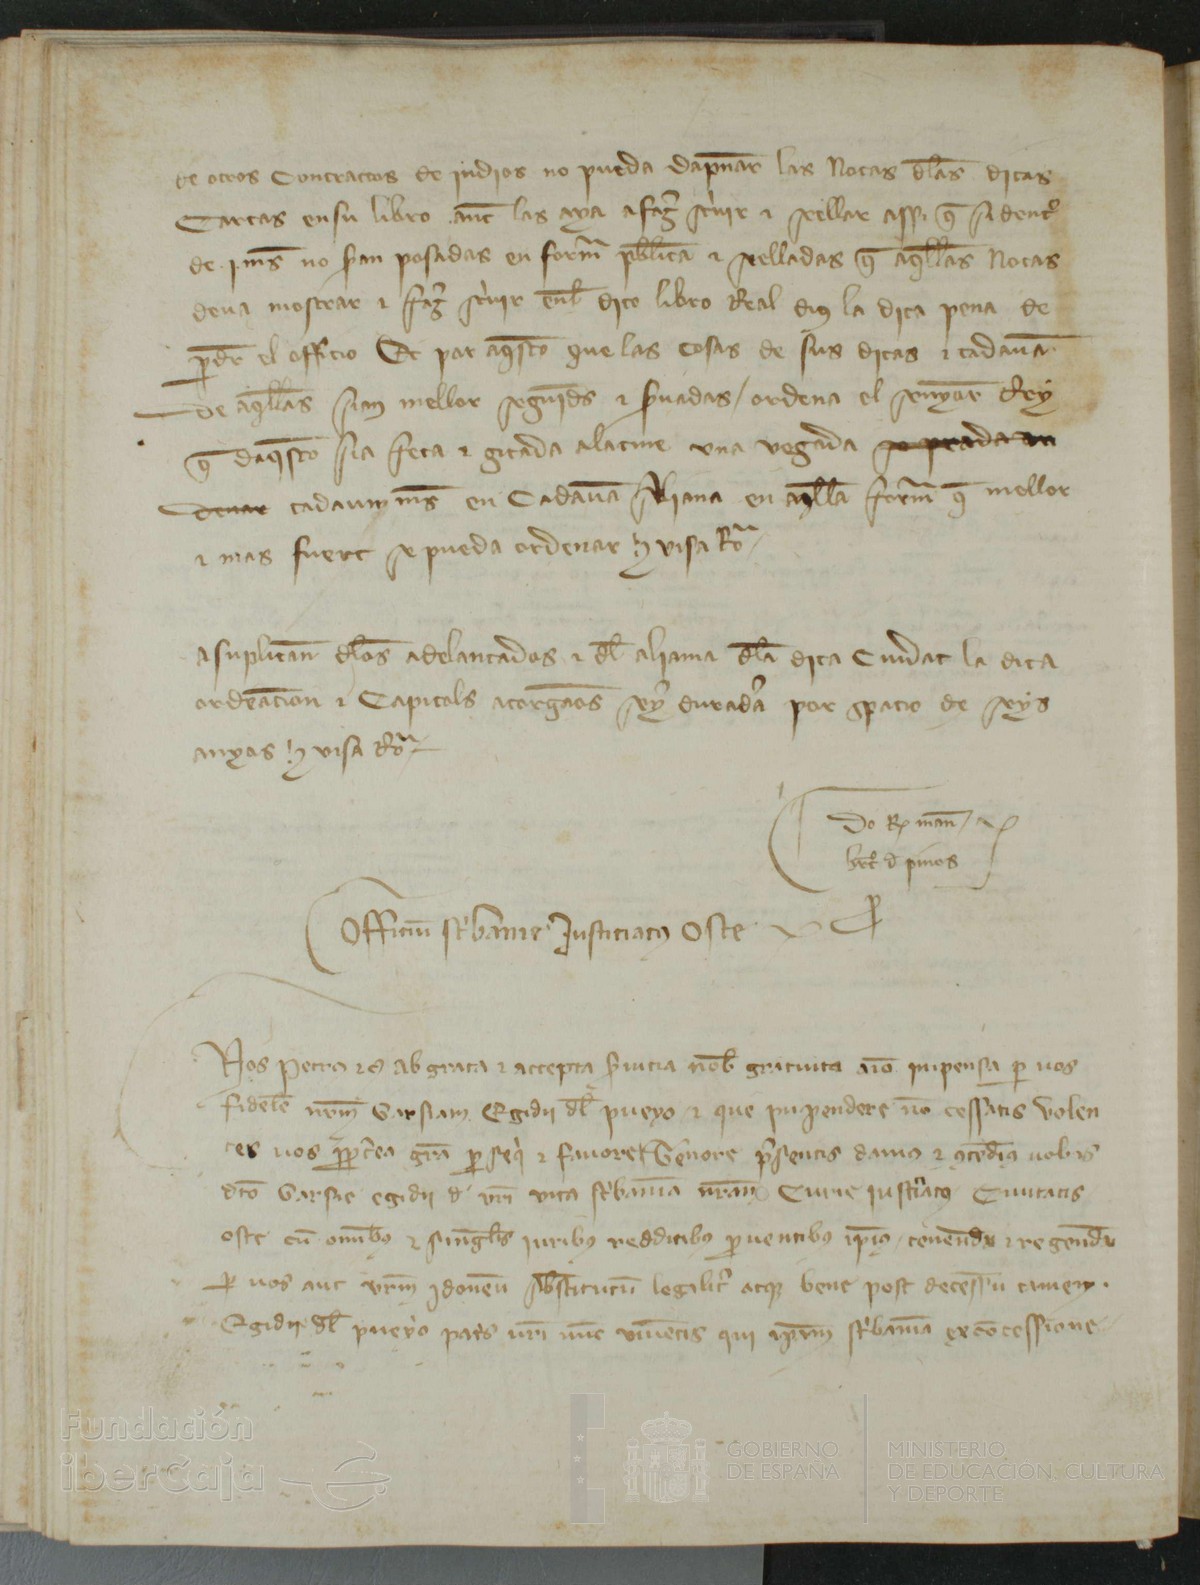 de otros Contractos de judios no pueda dapnar las Notas dlas ditas
Cartas en su libro ant las aya a fazer scriuir ⁊ siellar assi q̄ si dentro
de .j. mes no seran posadas en forma publica ⁊ sielladas q̄ aqllas Notas
deua mostrar ⁊ ffazer scriuir enl dito libro Real dius la dita pena de
perder el officio Et por aqsto que las cosas de sus ditas ⁊ cadauna
de aqllas sian mellor seguidas ⁊ seruadas / ordena el senyor Rey
q̄ daqsto sia feta ⁊ gitada alacme una vegada
cadaun mes en Cadauna Aliama en aqlla forma q̄ mellor
⁊ mas fuert se pueda ordenar visa Ro
A suplicacion dlos adelantados ⁊ dl aliama dla dita Ciudat la dita
ordenacion ⁊ Capitols atorgados seer duradera por spacio de seys
anyos visa Ro
Do Rex mand
brt d pinos
Officium scribanie Justiciatus Osce
Nos Petrus ⁊c Ab grata ⁊ accepta seruicia nob gratuito aio inpensa per uos
fidele nrm Garsiam Egidii dl pueyo ⁊ que inpendere no cessatis Volen
tes uos propterea gra prosequi ⁊ fauore Tenore presentis damus ⁊ concedimus uobis
dco Garsie egidii d uri vita scribania nram Curie Justiciatus Ciuitatis
osce cu omibus ⁊ singulis iuribus redditibus prouentibus ipius / tenenda ⁊ regenda
per uos aut urm ydoneu substitutu legaliter atque bene post decessu tamen
Egidii dl pueyo patris uri nunc uiuentis qui ipam scribania ex concessione
Fundación
iberCaja
GOBIERNO
DE ESPAÑA
MINISTERIO
DE EDUCACIÓN, CULTURA
Y DEPORTE